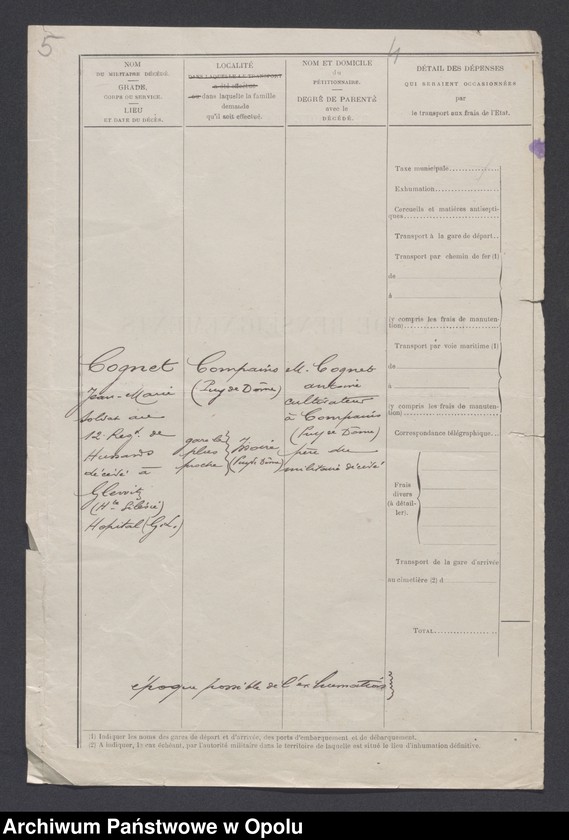 5
4
NOM
DU MILITAIRE DÉCÉDÉ.
GRADE,
CORPS OU SERVICE.
LIEU
ET DATE DU DÉCÈS.
LOCALITÉ
DANS LAQUELLE LE TRANSPORT
a été effectué
ou dans laquelle la famille
demande
qu'il soit effectué.
NOM ET DOMICILE
du
PÉTITIONNAIRE.
DEGRÉ DE PARENTÉ
avec le
DÉCÉDÉ.
DÉTAIL DES DÉPENSES
QUI SERAIENT OCCASIONNÉES
par
le transport aux frais de l'État.
Cognet
Jean-Marie
soldat au
12 Regt. de
Hussards
décédé à
Gleiwitz
(Hte Silésie)
Hopital (G.L.)
Compains
(Puy de Dôme)
gare la
plus
proche
Issoire
(Puy de Dôme)
M. Cognet
antoine
cultivateur
à Compains
(Puy de Dôme)
père du
militaire décédé
Taxe municipale
Exhumation
Cercueils et matières antisepti-
ques
Transport à la gare de départ
Transport par chemin de fer (1)
de
à
(y compris les frais de manuten-
tion)
Transport par voie maritime (1)
de
à
(y compris les frais de manuten-
tion)
Correspondance télégraphique
Frais
divers
(à détail-
ler).
Transport de la gare d'arrivée
au cimetière (2) d
TOTAL
époque possible de l'exhumation
(1) Indiquer les noms des gares de départ et d'arrivée, des ports d'embarquement et de débarquement.
(2) A indiquer, le cas échéant, par l'autorité militaire dans le territoire de laquelle est situé le lieu d'inhumation définitive.
Archiwum Państwowe w Opolu